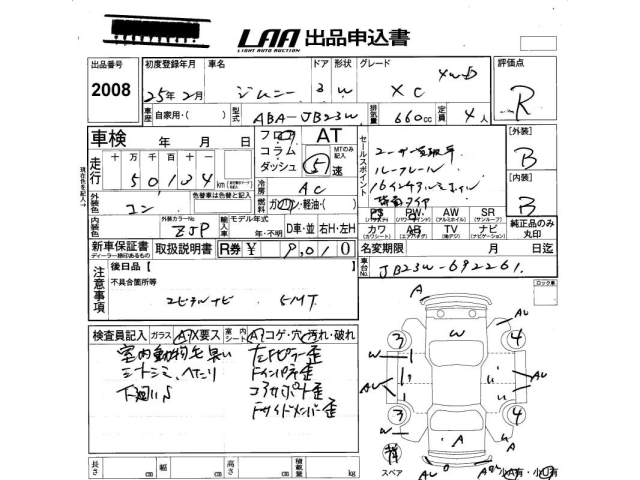 LAA 出品申込書
LIGHT AUTO AUCTION
出品番号 初度登録年月 車名 ドア 形状 グレード 評価点
2008 25年2月 ジムニー 3 W XC 4WD R
車歴 自家用・( ) 型式 ABA-JB23W 排気量 660cc 定員 4人
車検 年 月 日
フロア コラム ダッシュ AT MTのみ記入 5速
セールスポイント
ユーザー買取車
ルーフレール
16インチアルミホイル
背面タイヤ
[外装] B
[内装] B
走行 十万千百十 50134 km
現在色を記入→
外装色 コン 色替車は色替と記入
外装カラーNo ZJP
冷房 AC
燃料 ガソリン・軽油・( )
輸入車 モデル年式 年・不明 D車・並 右H・左H
PS パワステ PW パワーウインド AW アルミホイル SR サンルーフ
カワ カワシート AB エアバッグ TV 地デジ ナビ ナビゲーション
純正品のみ丸印
新車保証書 取扱説明書 R券 ¥ 9,010
ディーラー捺印あるもの
名変期限 月 日迄
車台No. JB23W-692261
注意事項
後日品【 】
不具合箇所等
社外ナビ 5MT
ロック車
検査員記入 ガラス A X要ス 室内シート A コゲ・穴 汚れ・破れ
室内動物毛臭い
シートシミ、ヘたり
下廻りS
左Fピラー歪
Fインパネ歪
コアサポート歪
Fサイドメンバー歪
A W AU 3 4 W AU
AU 3 4 AU W A A
スペア AU A 小A有・小U有
長さ cm 幅 cm 高さ cm 積載量 kg